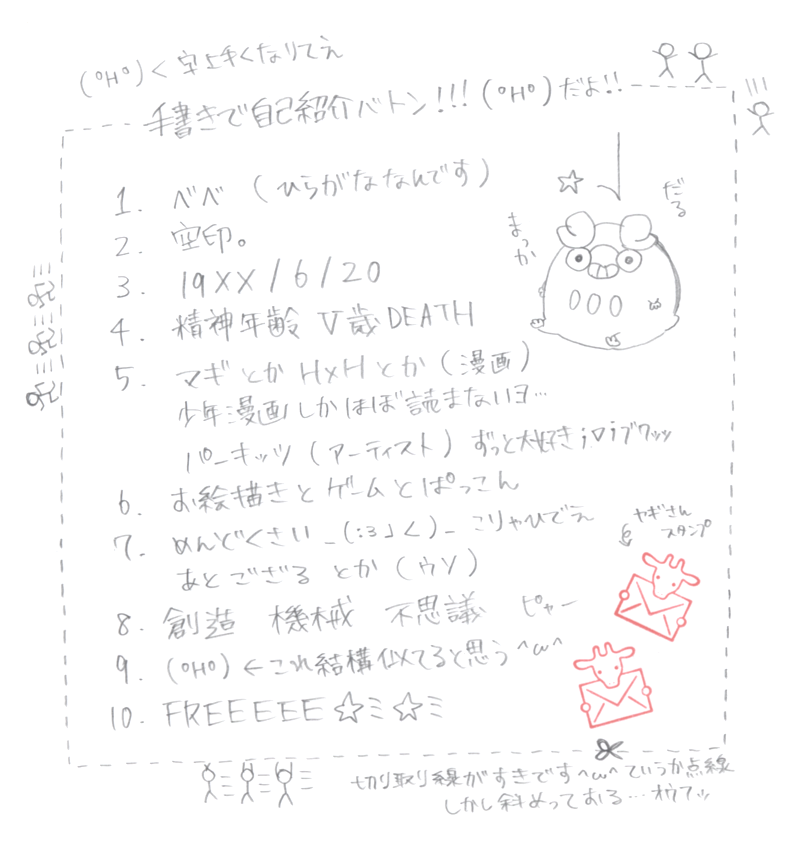 (°H°)<字上手くなりてえ
手書きで自己紹介バトン!!!(°H°)だよ!!
1. べべ (ひらがななんです)
2. 空印。
3. 19XX/6/20
4. 精神年齢 V歳DEATH
5. マギとかH×Hとか(漫画)
少年漫画しかほぼ読まないヨ…
パーキッツ(アーティスト)ずっと大好き;∇;ブワッツ
6. お絵描きとゲームとぱっこん
7. めんどくさい_(:3」く)_ こりゃひでえ
あとござる とか(ウソ)
8. 創造 機械 不思議 ピャー
9. (°H°)←これ結構似てると思う^ω^
10. FREEEEEE☆ミ☆ミ
☆
だる
まっか
000
ヤギさん
スタンプ
切り取り線がすきです^ω^ていうか点線
しかし斜めっておる…オウフッ